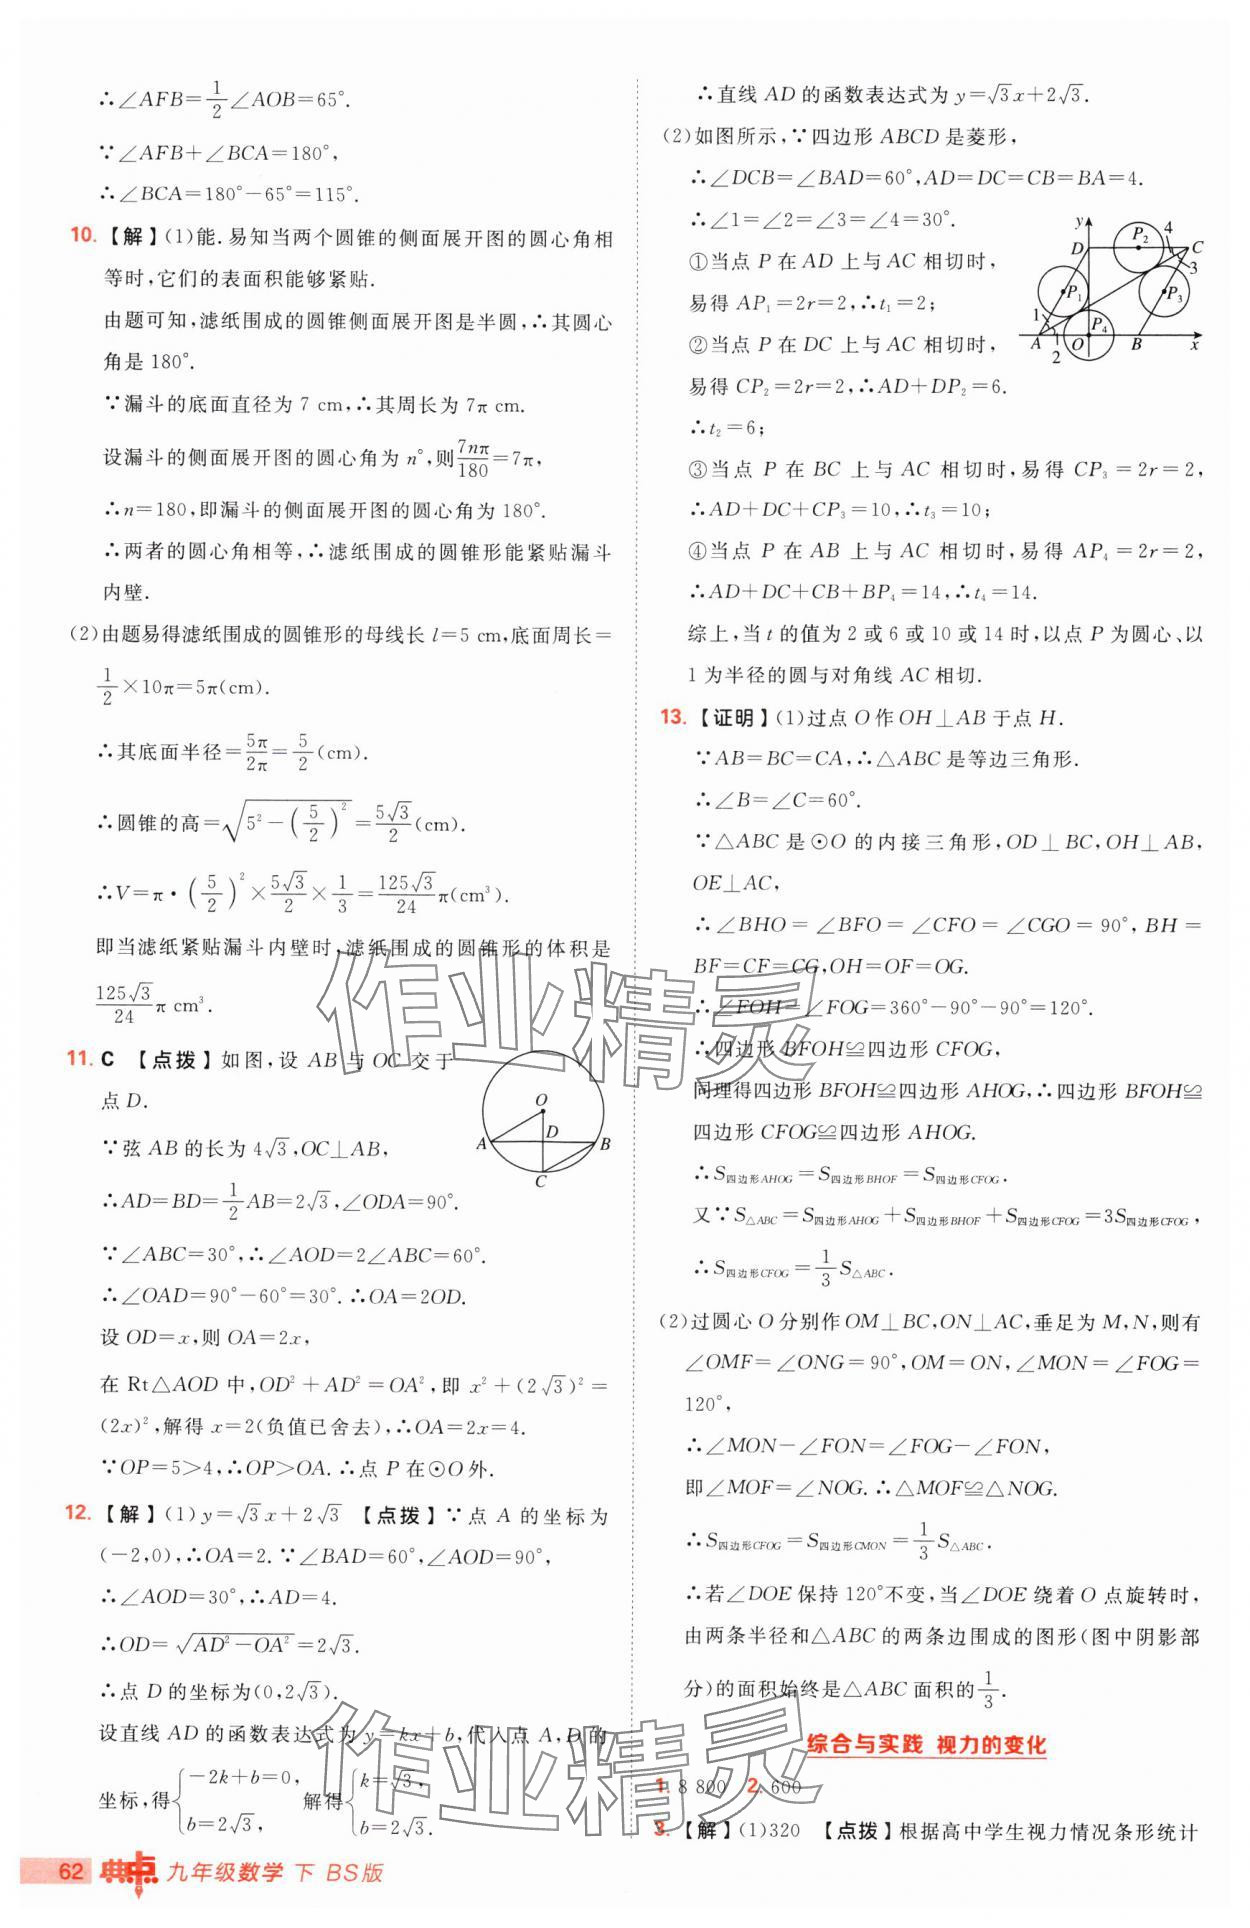 ∴∠AFB=1/2∠AOB=65°.
∵∠AFB+∠BCA=180°,
∴∠BCA=180°-65°=115°.
10.【解】(1)能.易知当两个圆锥的侧面展开图的圆心角相
等时,它们的表面积能够紧贴.
由题可知,滤纸围成的圆锥侧面展开图是半圆,∴其圆心
角是180°.
∵漏斗的底面直径为7 cm,∴其周长为7π cm.
设漏斗的侧面展开图的圆心角为n°,则7nπ/180=7π,
∴n=180,即漏斗的侧面展开图的圆心角为180°.
∴两者的圆心角相等,∴滤纸围成的圆锥形能紧贴漏斗
内壁.
(2)由题易得滤纸围成的圆锥形的母线长l=5 cm,底面周长=
1/2×10π=5π(cm).
∴其底面半径=5π/2π=5/2(cm).
∴圆锥的高=√(5²-(5/2)²)=5√3/2(cm).
∴V=π·(5/2)²×5√3/2×1/3=125√3/24π(cm³).
即当滤纸紧贴漏斗内壁时,滤纸围成的圆锥形的体积是
125√3/24π cm³.
11. C 【点拨】如图,设AB与OC交于
点D.
∵弦AB的长为4√3,OC⊥AB,
∴AD=BD=1/2AB=2√3,∠ODA=90°.
∵∠ABC=30°,∴∠AOD=2∠ABC=60°.
∴∠OAD=90°-60°=30°.∴OA=2OD.
设OD=x,则OA=2x,
在Rt△AOD中,OD²+AD²=OA²,即x²+(2√3)²=
(2x)²,解得x=2(负值已舍去),∴OA=2x=4.
∵OP=5>4,∴OP>OA.∴点P在⊙O外.
O
A
D
B
C
12.【解】(1)y=√3x+2√3 【点拨】∵点A的坐标为
(-2,0),∴OA=2.∵∠BAD=60°,∠AOD=90°,
∴∠AOD=30°,∴AD=4.
∴OD=√(AD²-OA²)=2√3.
∴点D的坐标为(0,2√3).
设直线AD的函数表达式为y=kx+b,代入点A,D的
坐标,得{-2k+b=0, b=2√3, 解得{k=√3, b=2√3.
∴直线AD的函数表达式为y=√3x+2√3.
(2)如图所示,∵四边形ABCD是菱形,
∴∠DCB=∠BAD=60°,AD=DC=CB=BA=4.
∴∠1=∠2=∠3=∠4=30°.
①当点P在AD上与AC相切时,
易得AP₁=2r=2,∴t₁=2;
②当点P在DC上与AC相切时,
易得CP₂=2r=2,∴AD+DP₂=6.
∴t₂=6;
y
D
P₂
4
C
3
P₁
P₃
1
P₄
A
O
B
x
2
③当点P在BC上与AC相切时,易得CP₃=2r=2,
∴AD+DC+CP₃=10,∴t₃=10;
④当点P在AB上与AC相切时,易得AP₄=2r=2,
∴AD+DC+CB+BP₄=14,∴t₄=14.
综上,当t的值为2或6或10或14时,以点P为圆心、以
1为半径的圆与对角线AC相切.
13.【证明】(1)过点O作OH⊥AB于点H.
∵AB=BC=CA,∴△ABC是等边三角形.
∴∠B=∠C=60°.
∵△ABC是⊙O的内接三角形,OD⊥BC,OH⊥AB,
OE⊥AC,
∴∠BHO=∠BFO=∠CFO=∠CGO=90°,BH=
BF=CF=CG,OH=OF=OG.
∴∠FOH=∠FOG=360°-90°-90°-60°=120°.
∴四边形BFOH≌四边形CFOG,
同理得四边形BFOH≌四边形AHOG,∴四边形BFOH≌
四边形CFOG≌四边形AHOG.
∴S四边形AHOG=S四边形BHOF=S四边形CFOG.
又∵S△ABC=S四边形AHOG+S四边形BHOF+S四边形CFOG=3S四边形CFOG,
∴S四边形CFOG=1/3S△ABC.
(2)过圆心O分别作OM⊥BC,ON⊥AC,垂足为M,N,则有
∠OMF=∠ONG=90°,OM=ON,∠MON=∠FOG=
120°,
∴∠MON-∠FON=∠FOG-∠FON,
即∠MOF=∠NOG.∴△MOF≌△NOG.
∴S四边形CFOG=S四边形CMON=1/3S△ABC.
∴若∠DOE保持120°不变,当∠DOE绕着O点旋转时,
由两条半径和△ABC的两条边围成的图形(图中阴影部
分)的面积始终是△ABC面积的1/3.
综合与实践 视力的变化
1. 8 800 2. 600
3.【解】(1)320 【点拨】根据高中学生视力情况条形统计
作业精灵
作业精灵
62 典中点 九年级数学 下 BS版